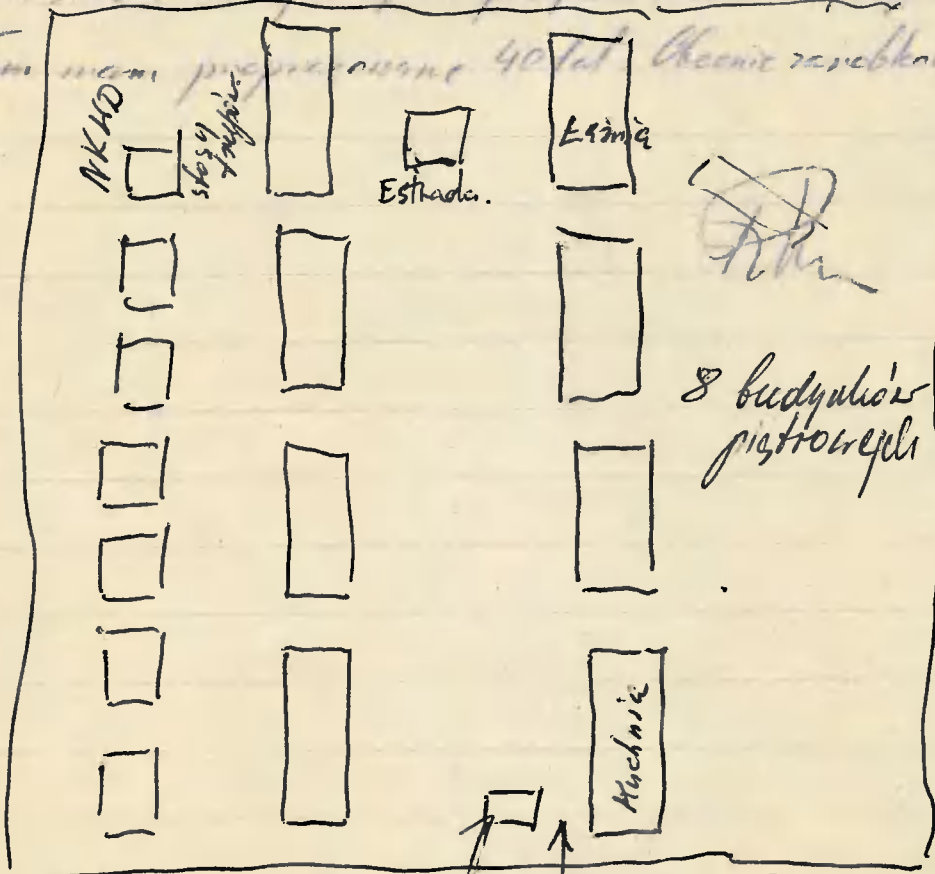 mam przepracowane 40 lat. Obecnie
NKWD
stosy
trupów.
Estrada.
Łaźnia
8 budynków
piętrowych
Kuchnia